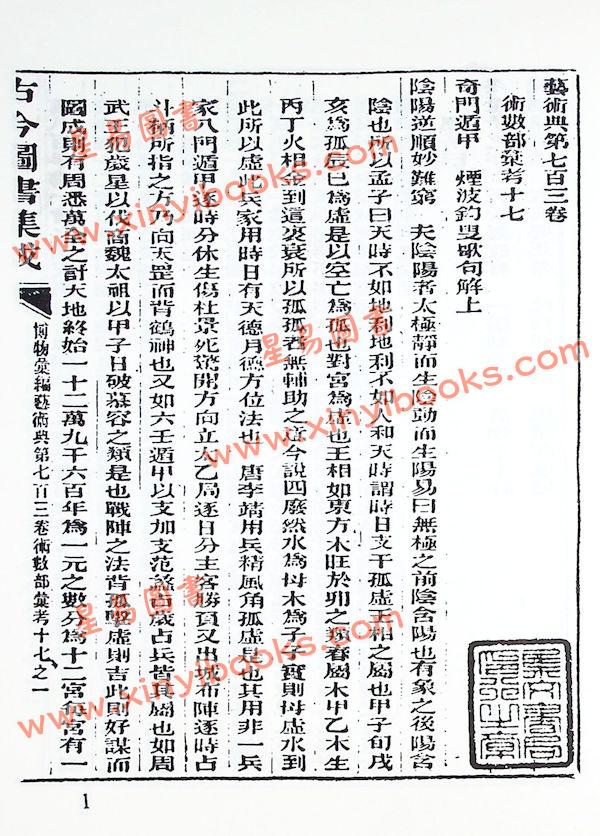 藝術典第七百三卷
術數部彙考十七
奇門遁甲　煙波釣叟歌句解上
陰陽逆順妙難窮　夫陰陽者太極靜而生陰動而生陽易曰無極之前陰含陽也有象之後陽含
陰也所以孟子曰天時不如地利地利不如人和天時謂時日支干孤虛王相之屬也甲子旬戌
亥爲孤辰巳爲虛是以空亡爲孤也對宮爲虛也王相如東方木旺於卯之類春屬木甲乙木生
丙丁火相金到這裏衰所以孤孤者無輔助之意今說四廢然水爲母木爲子子實則母虛水到
此所以虛此兵家用時日有天德月德方位法也　唐李靖用兵精風角孤虛是也其用非一兵
家八門遁甲逐時分休生傷杜景死驚開方向立太乙局逐日分主客勝負又出城布陣逐時占
斗柄所指之方乃向天罡而背鶴神也又如六壬遁甲以支加支范蠡占歲占兵皆其屬也如周
武王犯歲星以伐商魏太祖以甲子日破慕容之類是也戰陣之法背孤擊虛則吉此則好謀而
圖成則有周悉萬全之計天地終始一十二萬九千六百年爲一元之數分爲十二宮每宮有一
古今圖書集成
博物彙編藝術典第七百三卷術數部彙考十七之一
1
星易圖書
www.xinyibooks.com
星易圖書
www.xinyibooks.com
星易圖書
www.xinyibooks.com